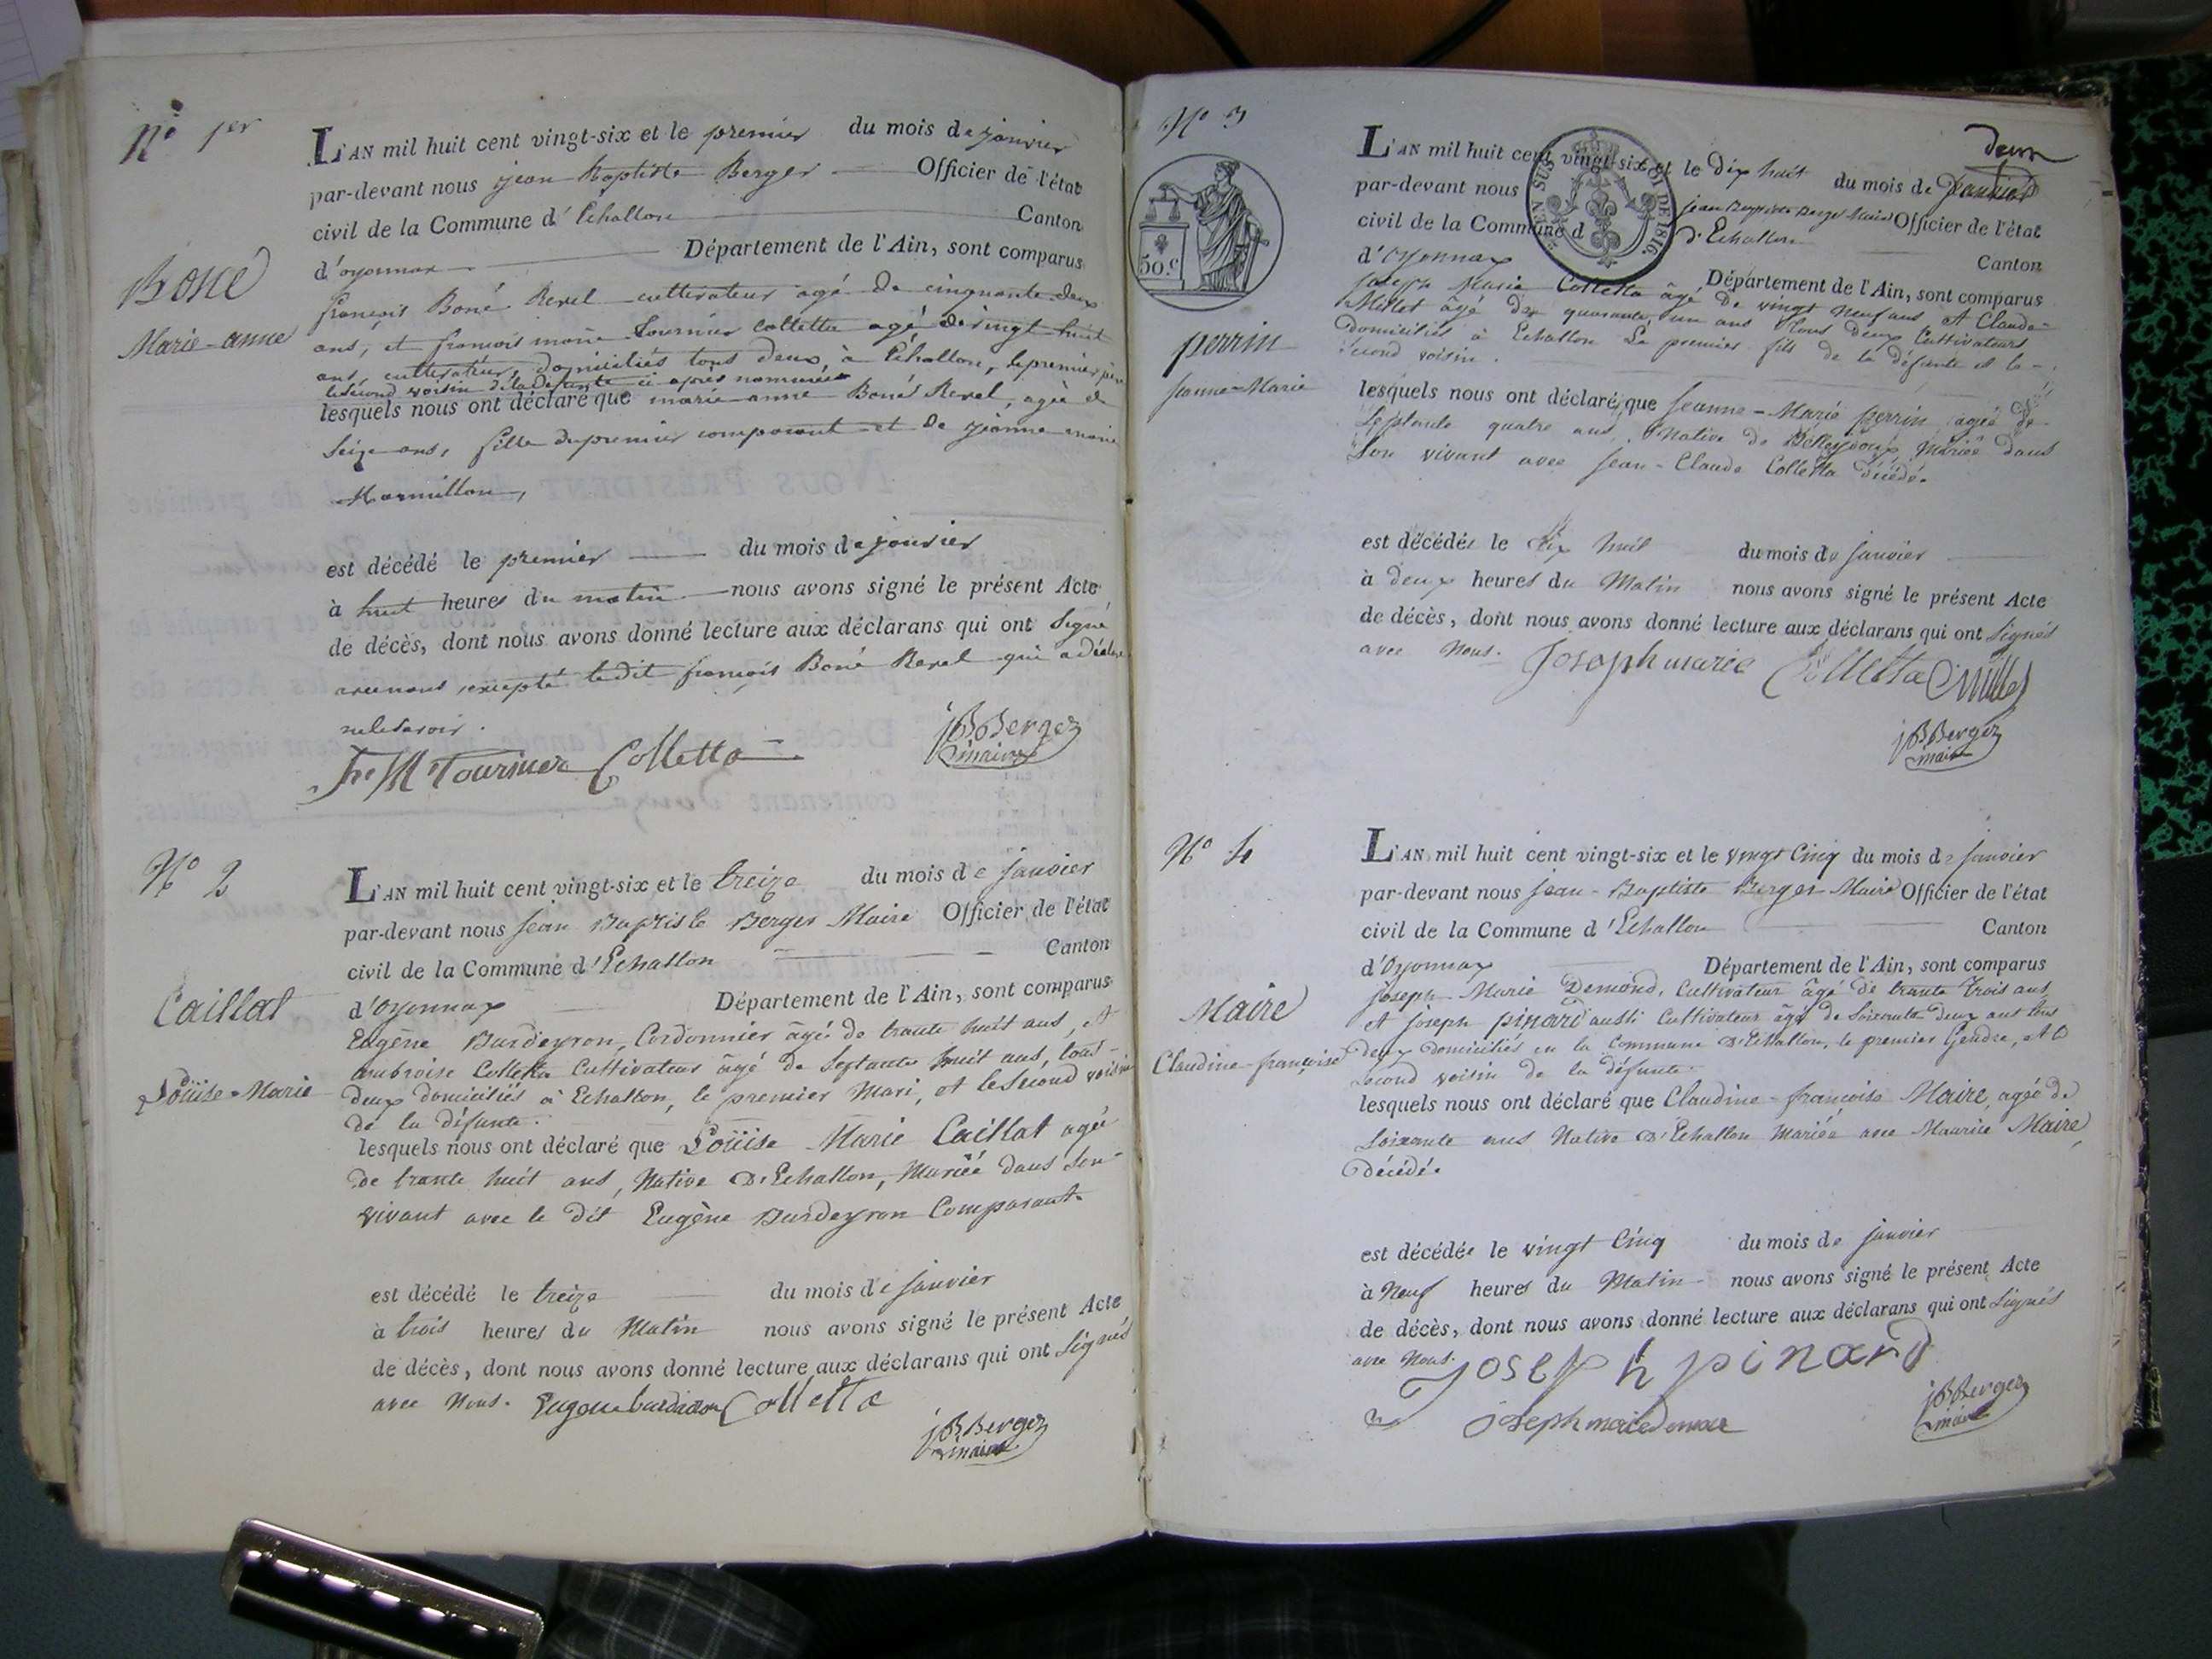 N° 1er
Boné
Marie-anne
L'AN mil huit cent vingt-six et le premier du mois de janvier
par-devant nous jean Baptiste Berger Officier de l'état
civil de la Commune d'Echallon Canton
d'oyonnax Département de l'Ain, sont comparus
françois Boné Revel cultivateur agé de cinquante deux
ans, et françois marie Tournier Colletta agé de vingt huit
ans, cultivateur, domiciliés tous deux à Echallon, le premier père
le second voisin de la défunte ci après nommée
lesquels nous ont déclaré que marie anne Boné Revel, agée de
seize ans, fille du premier comparant et de jeanne marie
Marmillon,
est décédé le premier du mois de janvier
à huit heures du matin nous avons signé le présent Acte
de décès, dont nous avons donné lecture aux déclarans qui ont signé
avec nous, excepté ledit françois Boné Revel qui a déclaré
ne le savoir.
fr. M Tournier Colletta
jB Berger
maire
N° 2
Caillat
Loüise-Marie
L'AN mil huit cent vingt-six et le treize du mois de janvier
par-devant nous jean Baptiste Berger Maire Officier de l'état
civil de la Commune d'Echallon Canton
d'Oyonnax Département de l'Ain, sont comparus
Eugène Burdeyron, Cordonnier âgé de trante huit ans, et
ambroise Colletta Cultivateur âgé de septante huit ans, tous
deux domiciliés à Echallon, le premier Mari, et le second voisin
de la défunte.
lesquels nous ont déclaré que Loüise Marie Caillat agée
de trante huit ans, Native D'Echallon, Mariée dans son
vivant avec le dit Eugène Burdeyron Comparant
est décédé le treize du mois de janvier
à trois heures du Matin nous avons signé le présent Acte
de décès, dont nous avons donné lecture aux déclarans qui ont signés
avec Nous. Colletta
jB Berger
maire
N° 3
deux
50.c
DE 1816.
perrin
jeanne-Marie
L'AN mil huit cent vingt-six et le dix huit du mois de janvier
par-devant nous jean Baptiste Berger Maire Officier de l'état
civil de la Commune d D'Echallon Canton
d'Oyonnax Département de l'Ain, sont comparus
joseph Marie Colletta âgé de vingt neuf ans et Claude
Millet âgé de quarante un ans tous deux Cultivateurs
domiciliés à Echallon Le premier fils de la défunte et le
second voisin.
lesquels nous ont déclaré que jeanne-Marie perrin agée de
septante quatre ans, Native de Belleydoux Mariée dans
son vivant avec jean-Claude Colletta décédé.
est décédée le dix huit du mois de janvier
à deux heures du Matin nous avons signé le présent Acte
de décès, dont nous avons donné lecture aux déclarans qui ont signés
avec Nous. Joseph marie Colletta C Millet
jB Berger
maire
N° 4
Maire
Claudine-françoise
L'AN mil huit cent vingt-six et le vingt Cinq du mois de janvier
par-devant nous jean-Baptiste Berger Maire Officier de l'état
civil de la Commune d'Echallon Canton
d'Oyonnax Département de l'Ain, sont comparus
joseph-Marie Demond, Cultivateur âgé de trante trois ans,
et joseph pinard aussi Cultivateur âgé de soixante deux ans tous
deux domiciliés en la Commune D'Echallon, le premier Gendre, et le
second voisin de la défunte.
lesquels nous ont déclaré que Claudine-françoise Maire, agée de
soixante ans Native D'Echallon Mariée avec Maurice Maire,
décédé.
est décédée le vingt Cinq du mois de janvier
à Neuf heures du Matin nous avons signé le présent Acte
de décès, dont nous avons donné lecture aux déclarans qui ont signés
avec Nous. Joseph pinard
joseph marie Demond
jB Berger
maire